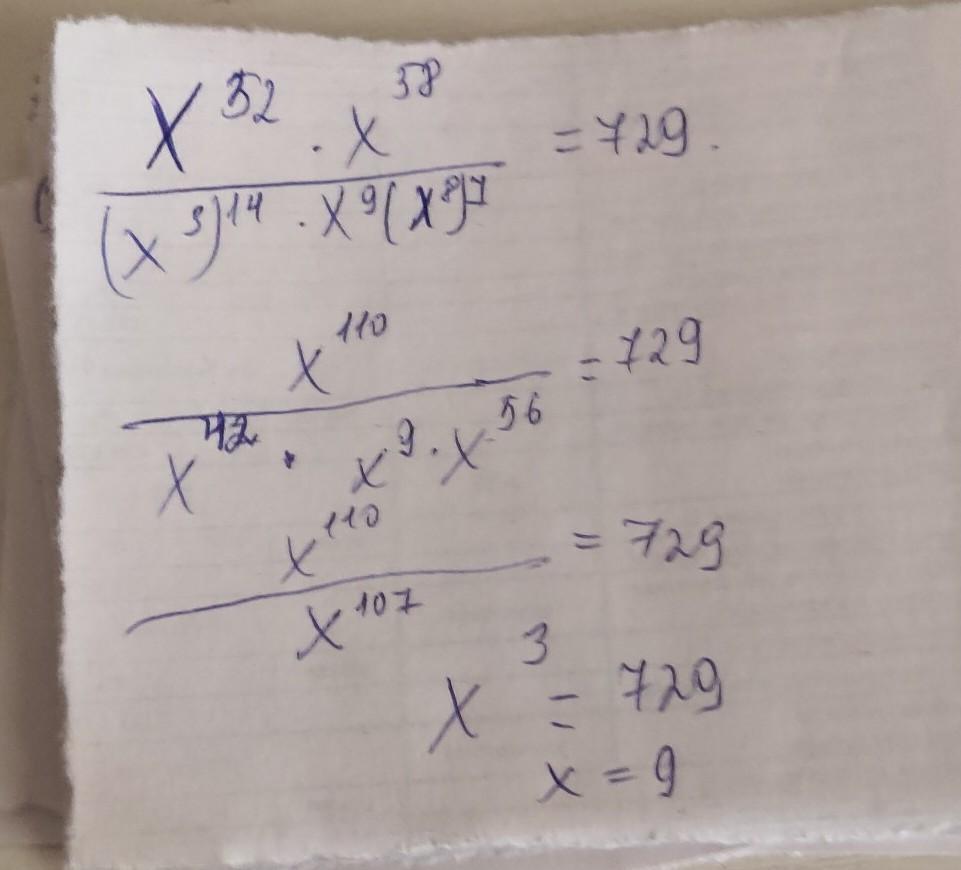 x^52 · x^58 / (x^3)^14 · x^9 (x^8)^7 = 729.
x^110 / x^42 · x^9 · x^56 = 729
x^110 / x^107 = 729
x^3 = 729
x = 9